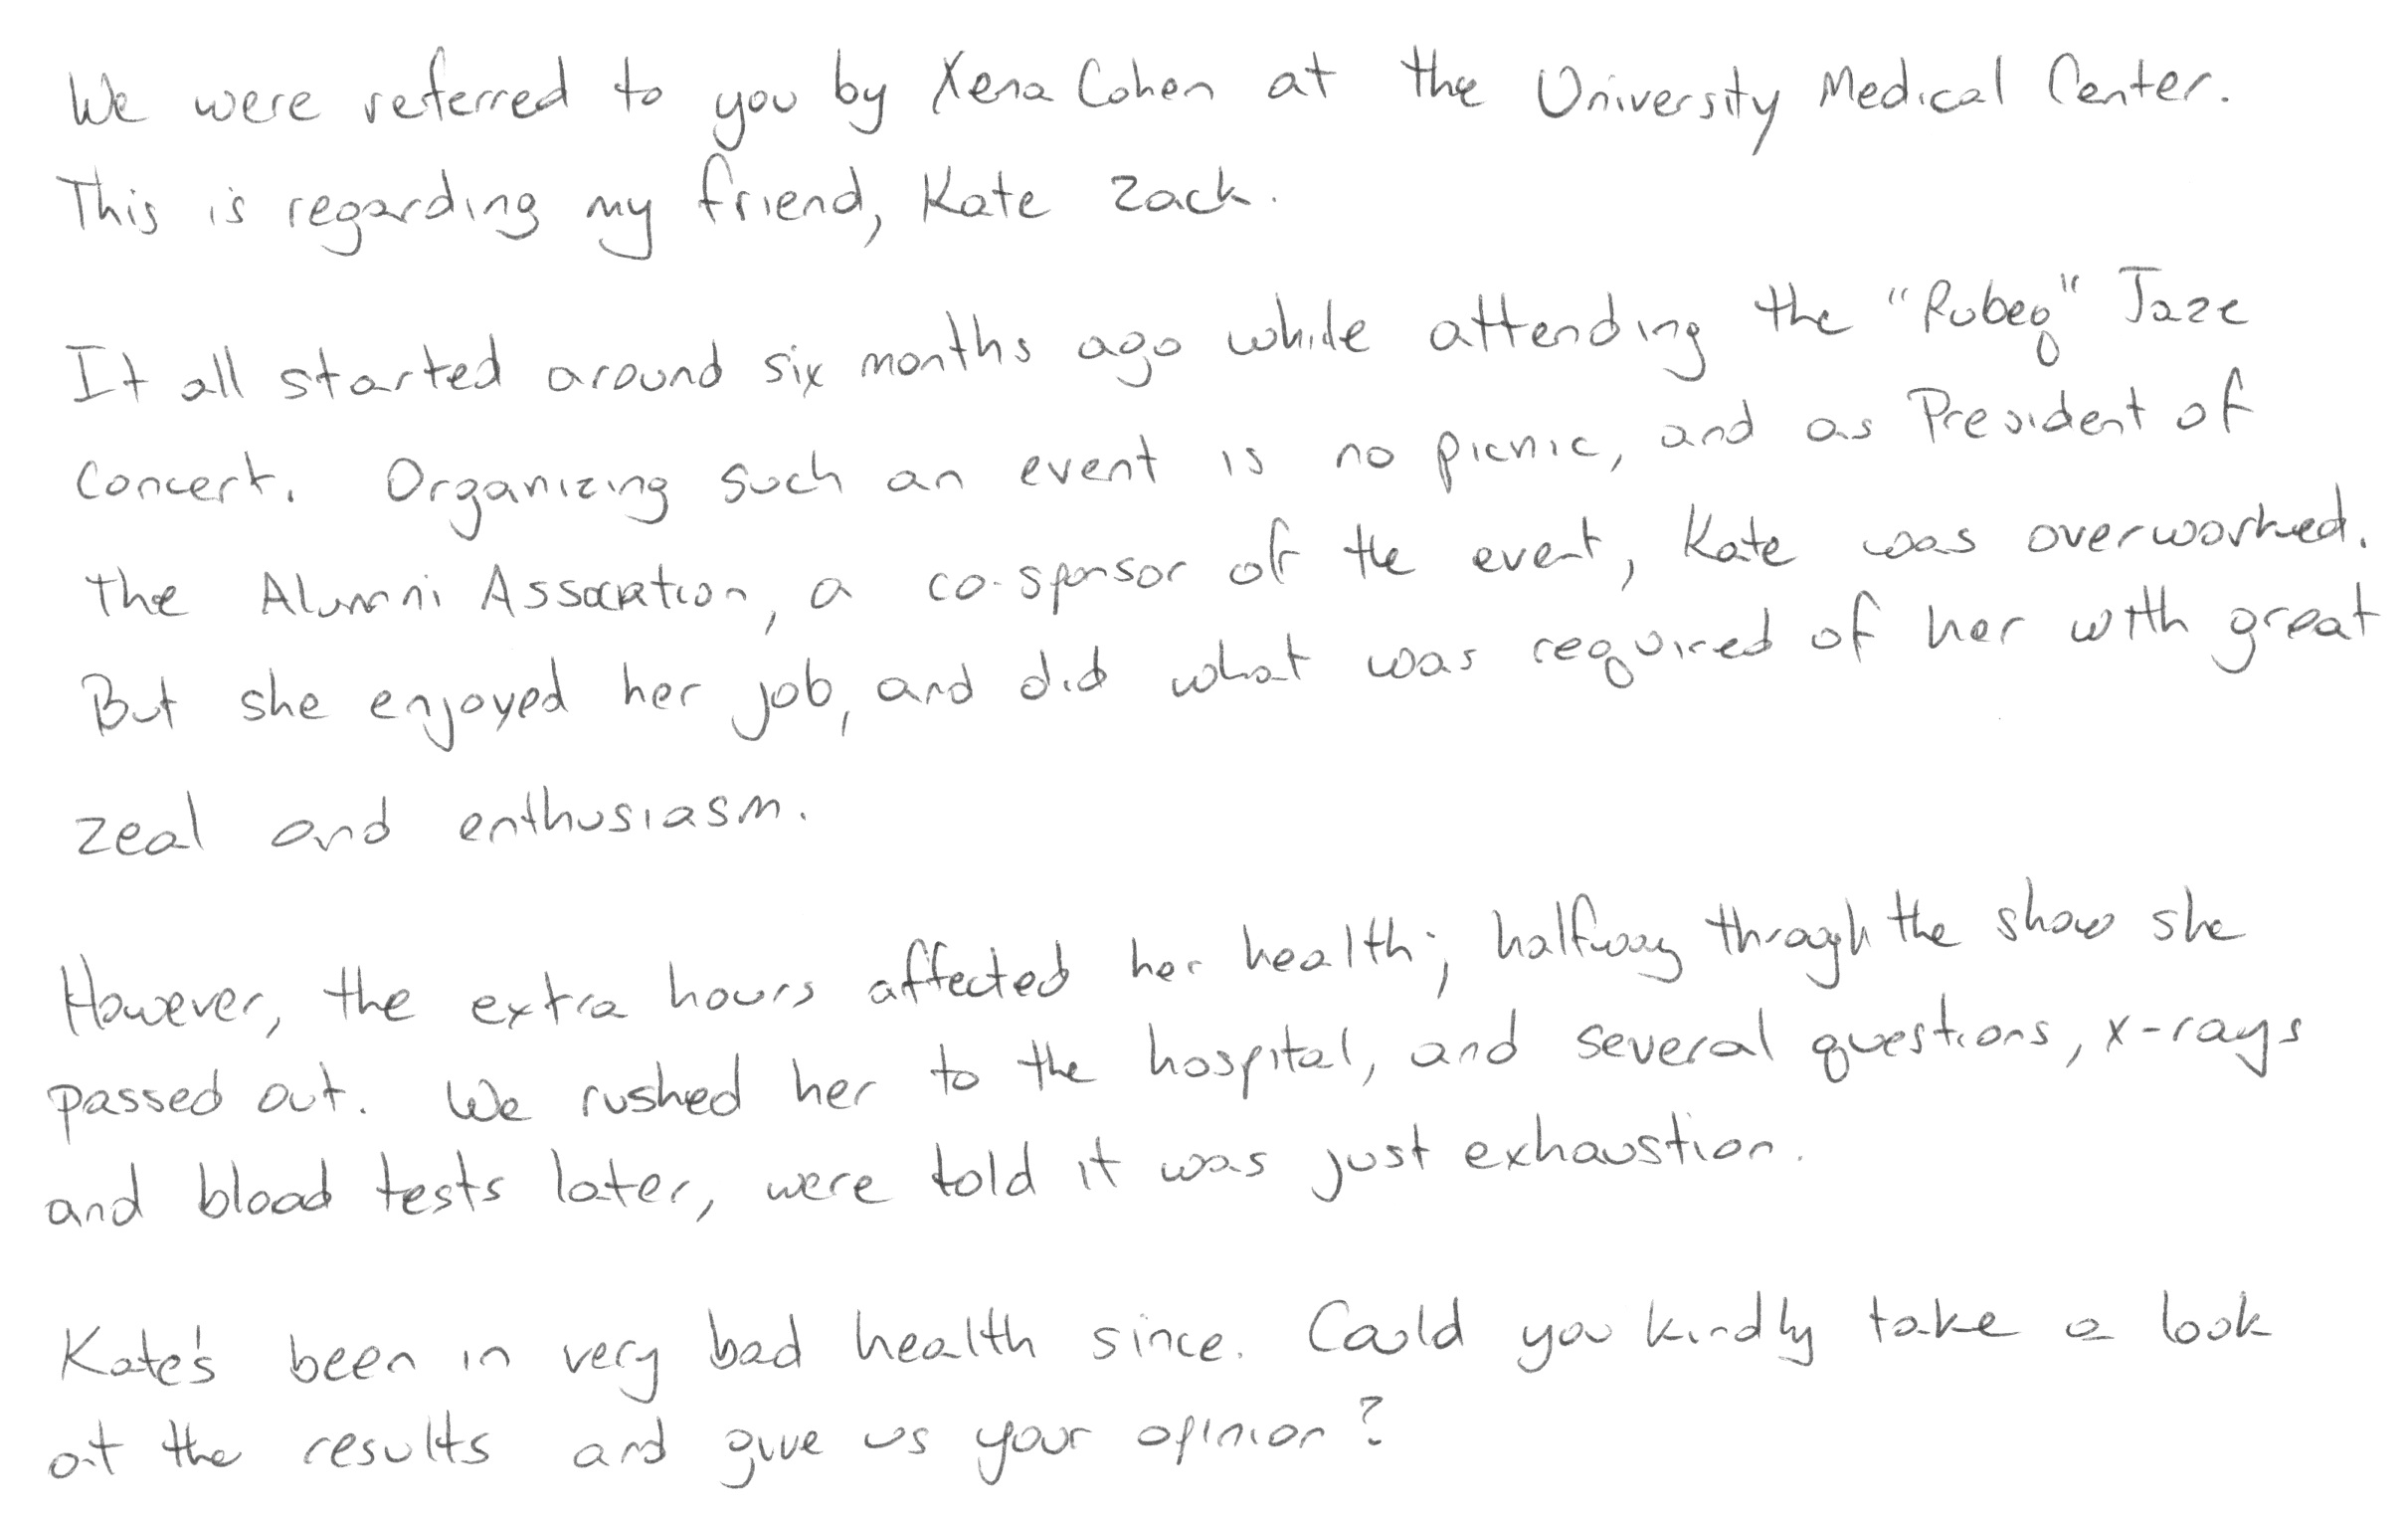 We were referred to you by Xena Cohen at the University Medical Center.
This is regarding my friend, Kate Zack.
It all started around six months ago while attending the "Rubeq" Jazz
Concert. Organizing such an event is no picnic, and as President of
the Alumni Association, a co-sponsor of the event, Kate was overworked.
But she enjoyed her job, and did what was required of her with great
zeal and enthusiasm.
However, the extra hours affected her health; halfway through the show she
passed out. We rushed her to the hospital, and several questions, x-rays
and blood tests later, were told it was just exhaustion.
Kate's been in very bad health since. Could you kindly take a look
at the results and give us your opinion?